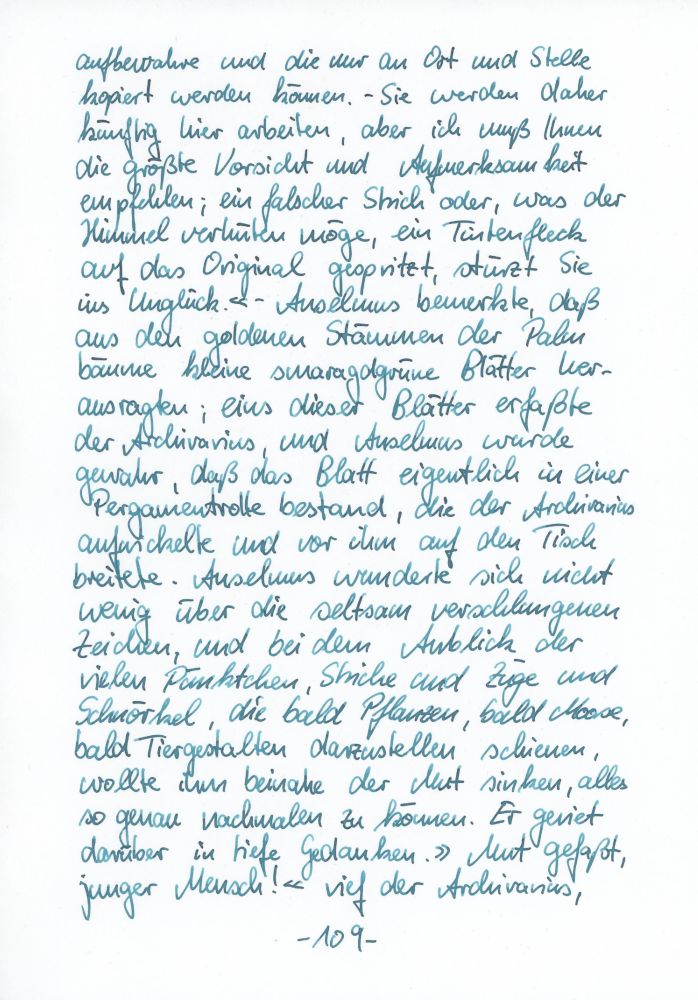 aufbewahre und die nur an Ort und Stelle
kopiert werden können. - Sie werden daher
künftig hier arbeiten, aber ich muß Ihnen
die größte Vorsicht und Aufmerksamkeit
empfehlen; ein falscher Strich oder, was der
Himmel verhüten möge, ein Tintenfleck
auf das Original gespritzt, stürzt Sie
ins Unglück.« - Anselmus bemerkte, daß
aus den goldenen Stämmen der Palm
bäume kleine smaragdgrüne Blätter her-
ausragten; eins dieser Blätter erfaßte
der Archivarius, und Anselmus wurde
gewahr, daß das Blatt eigentlich in einer
Pergamentrolle bestand, die der Archivarius
aufwickelte und vor ihm auf den Tisch
breitete. Anselmus wunderte sich nicht
wenig über die seltsam verschlungenen
Zeichen, und bei dem Anblick der
vielen Pünktchen, Striche und Züge und
Schnörkel, die bald Pflanzen, bald Moose,
bald Tiergestalten darzustellen schienen,
wollte ihm beinahe der Mut sinken, alles
so genau nachmalen zu können. Er geriet
darüber in tiefe Gedanken. » Mut gefaßt,
junger Mensch!« rief der Archivarius,
- 109 -